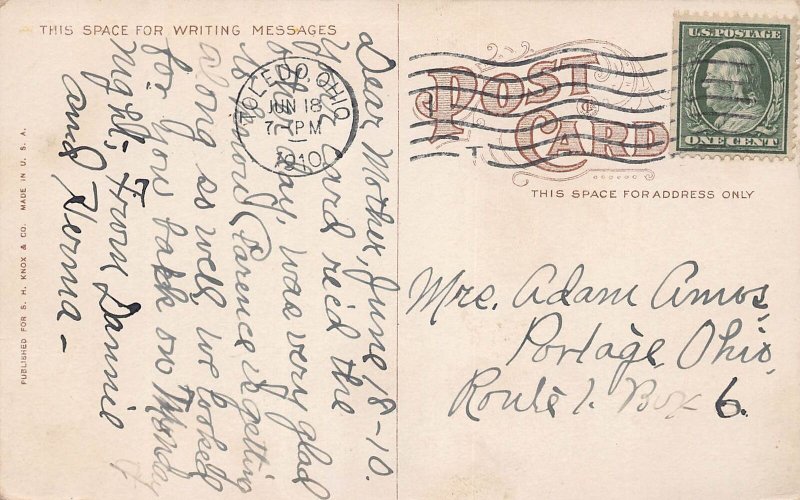 THIS SPACE FOR WRITING MESSAGES
Dear Mother, June 18-10.
Your card rec'd the
other day, was very glad
to know Clarence is getting
along as well, we looked
for you back on Monday
night, From Dannie
and Herma -
PUBLISHED FOR S. H. KNOX & CO. MADE IN U. S. A.
TOLEDO, OHIO
JUN 18
7-PM
1910
T
POST
CARD
THIS SPACE FOR ADDRESS ONLY
U.S. POSTAGE
ONE CENT
Mrs. Adam Amos,
Portage, Ohio,
Route 1. Box 6.